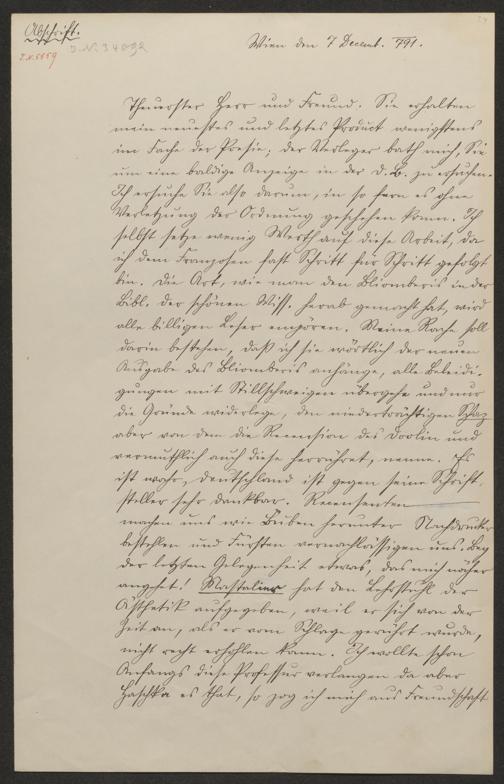 Abschrift.
I.N. 5559
I.N. 34092
Wien den 7 Decemb. 791.
Theuerster Herr und Freund. Sie erhalten
mein neuestes und letztes Product wenigstens
im Fache der Poesie; der Verleger bath mich, Sie
um eine baldige Anzeige in der d. B. zu ersuchen.
Ich ersuche Sie also darum, in so fern es ohne
Verletzung der Ordnung geschehen kann. Ich
selbst setze wenig Werth auf diese Arbeit, da
ich dem Franzosen fast Schritt für Schritt gefolgt
bin. Die Art, wie man den Bliomberis in der
Bibl. der schönen Wiss. herab gemacht hat, wird
alle billigen Leser empören. Meine Rache soll
darin bestehen, daß ich sie wörtlich der neuen
Ausgabe des Bliomberis anhänge, alle Beleidi-
gungen mit Stillschweigen übergehe und nur
die Gründe widerlege, den niederträchtigen Schaz
aber von dem die Recension des Doolin und
vermuthlich auch diese herrühret, nenne. Es
ist wahr, Deutschland ist gegen seine Schrift-
steller sehr dankbar. Recensenten
machen uns wie Buben herunter Nachdrucker
bestehlen und Fürsten vernachlässigen uns. Bey
der letzten Gelegenheit etwas, das mich näher
angehet! Mastalier hat den Lehrstuhl der
Ästhetik aufgegeben, weil er sich von der
Zeit an, als er vom Schlage gerührt wurde,
nicht recht erhohlen kann. Ich wollte schon
Anfangs diese Professur verlangen da aber
Haschka es that, so zog ich mich aus Freundschaft